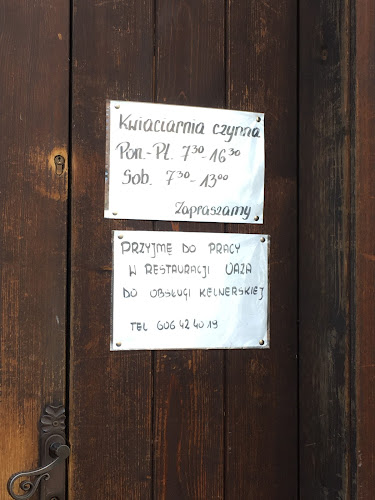 Kwiaciarnia czynna
Pon.-Pt. 7³⁰-16³⁰
Sob. 7³⁰-13⁰⁰
Zapraszamy
PRZYJMĘ DO PRACY
W RESTAURACJI WAZA
DO OBSŁUGI KELNERSKIEJ
TEL 606 42 40 19